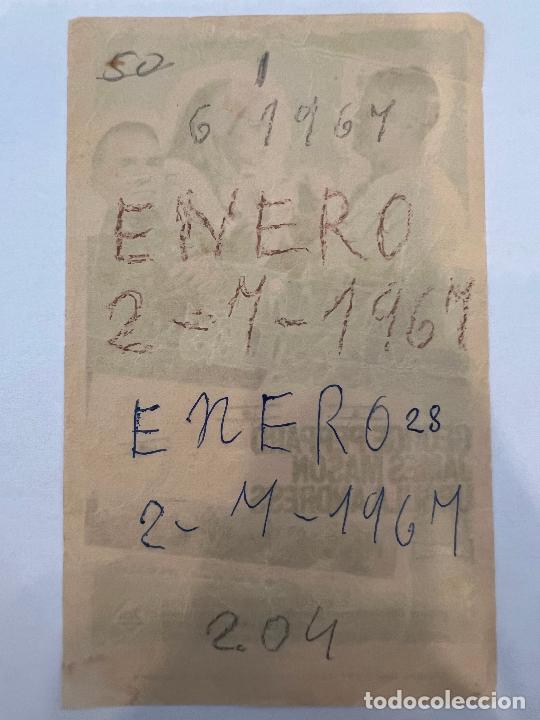 50
1
6 1967
ENERO
2-1-1967
ENERO 28
2-1-1967
2.04
todocoleccion